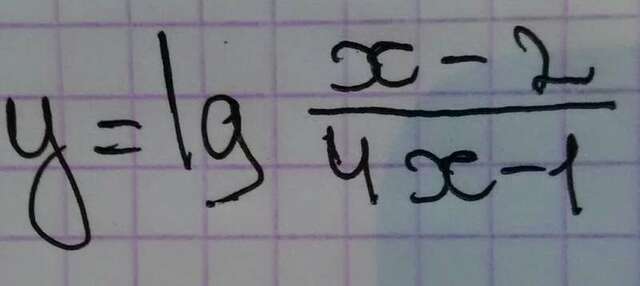 y = lg \frac{x - 2}{4x - 1}